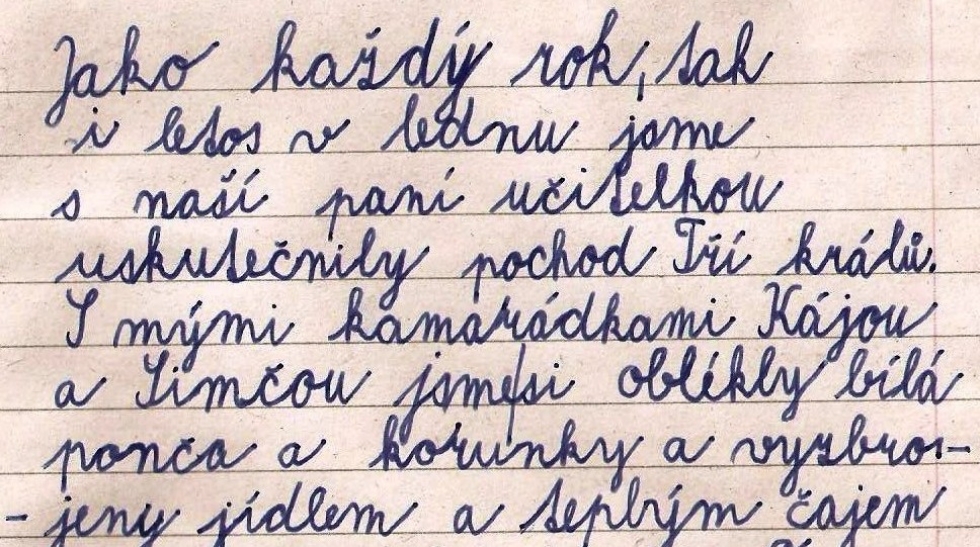 Jako každý rok, tak
i letos v lednu jsme
s naší paní učitelkou
uskutečnily pochod Tří králů.
S mými kamarádkami Kájou
a Simčou jsme/si oblékly bílá
ponča a korunky a vyzbro-
-jeny jídlem a teplým čajem